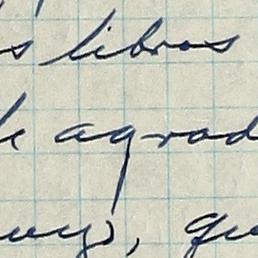 s libros
agrad
uyo, qu